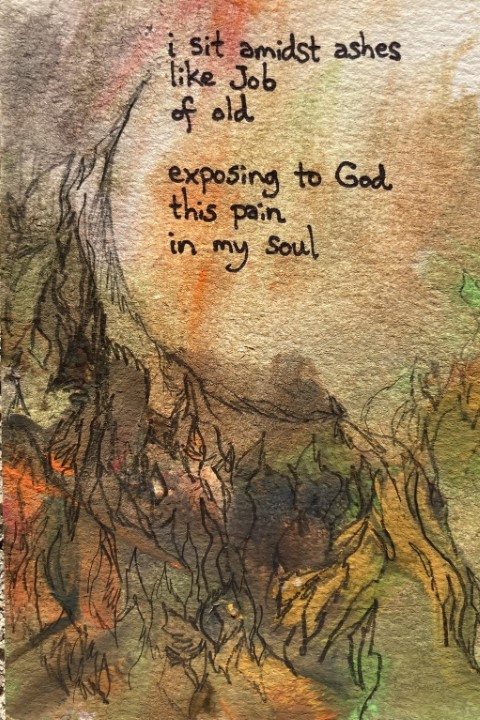 i sit amidst ashes
like Job
of old
exposing to God
this pain
in my soul